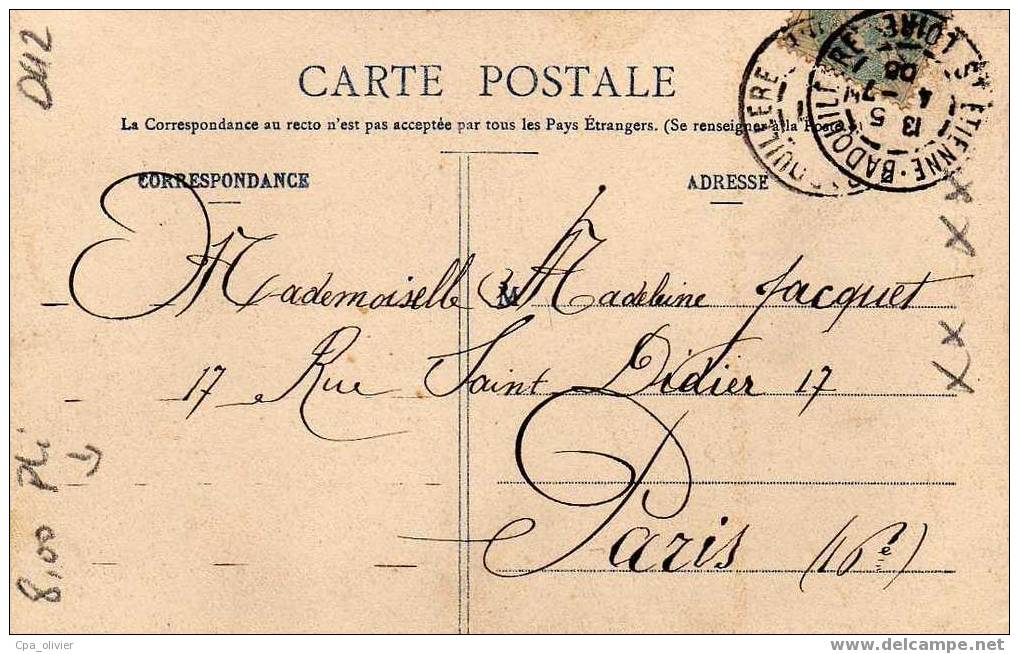 D42
CARTE POSTALE
La Correspondance au recto n'est pas acceptée par tous les Pays Étrangers. (Se renseigner à la Poste)
CORRESPONDANCE
ADRESSE
ST ETIENNE-BADOUILLERE
LOIRE
13 5
4 08
M
Mademoiselle Madeleine Jacquet
17 Rue Saint Didier 17
Paris (16e)
8,00 Pli
xx xx
Cpa_olivier
www.delcampe.net